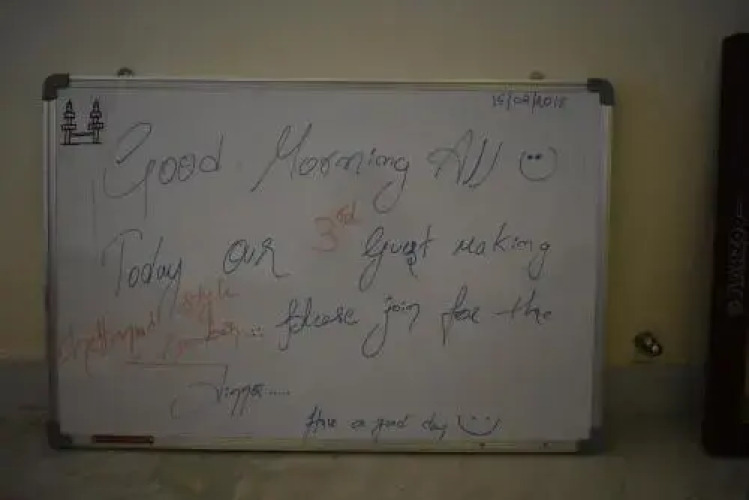 15/09/2018
Good Morning All
Today our 3rd Guest making
style
please join for the
Dinner.....
Have a good day